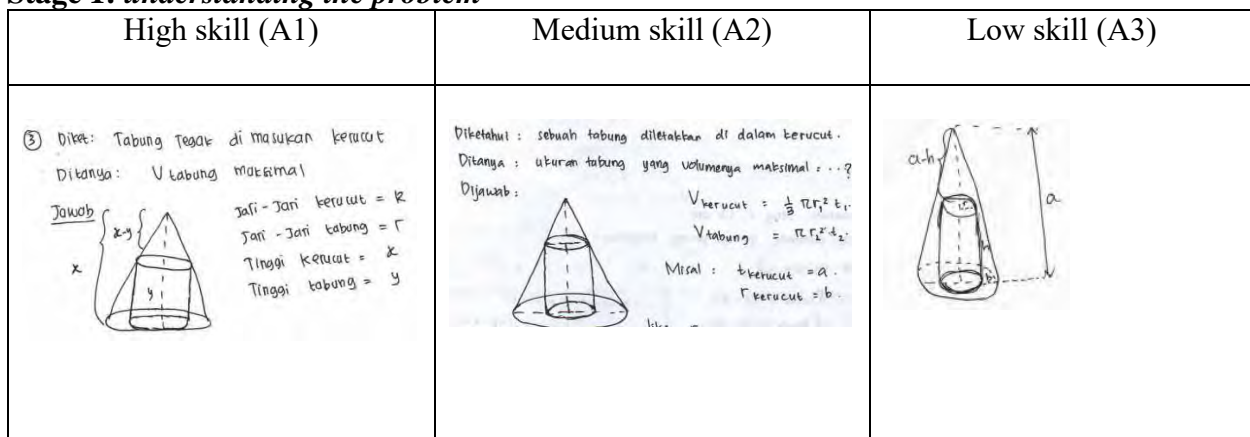 Stage 1: understanding the problem
High skill (A1)
Medium skill (A2)
Low skill (A3)
③ Diket: Tabung Tegak di masukan kerucut
Ditanya: V tabung maksimal
Jawab
x-y
x
y
Jari-Jari kerucut = R
Jari-Jari tabung = r
Tinggi kerucut = x
Tinggi tabung = y
Diketahui : sebuah tabung diletakkan di dalam kerucut.
Ditanya : ukuran tabung yang volumenya maksimal = ...?
Dijawab :
V kerucut = 1/3 π r₁² t₁.
V tabung = π r₂² t₂.
Misal : t kerucut = a.
r kerucut = b.
a-h
a
r
h
b